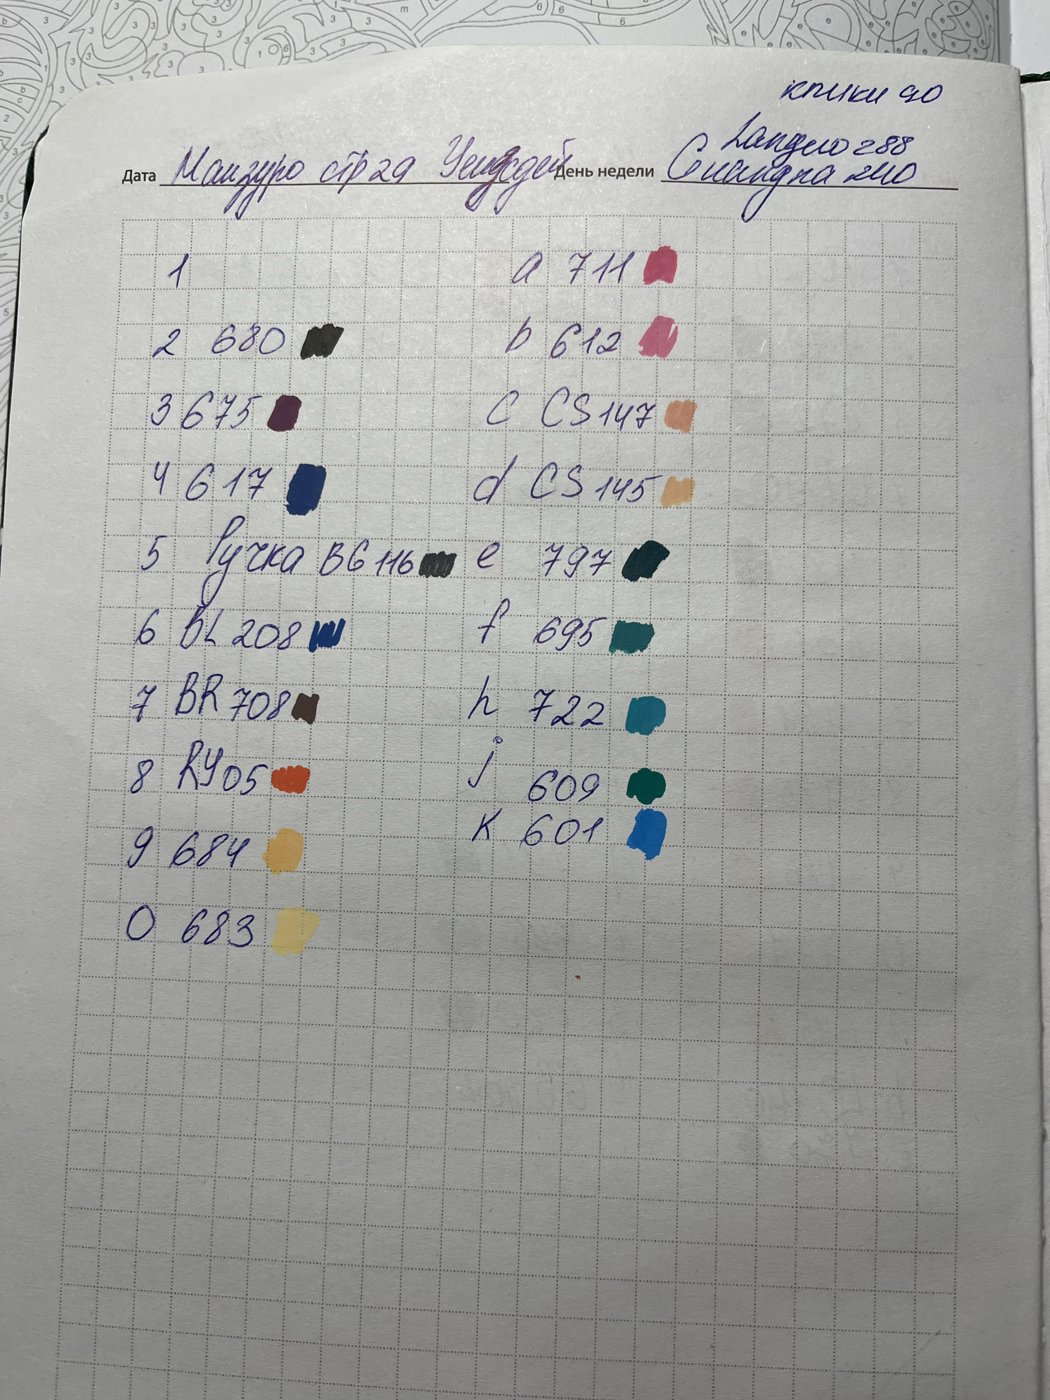 клики 90
Landuo 288
Дата Манзуро стр 29 Уенздей День недели Guangna 240
1 a 711
2 680 b 612
3 675 c CS 147
4 617 d CS 145
5 Ручка BG 116 e 797
6 BL 208 f 695
7 BR 708 h 722
8 RY05 j 609
9 684 K 601
0 683